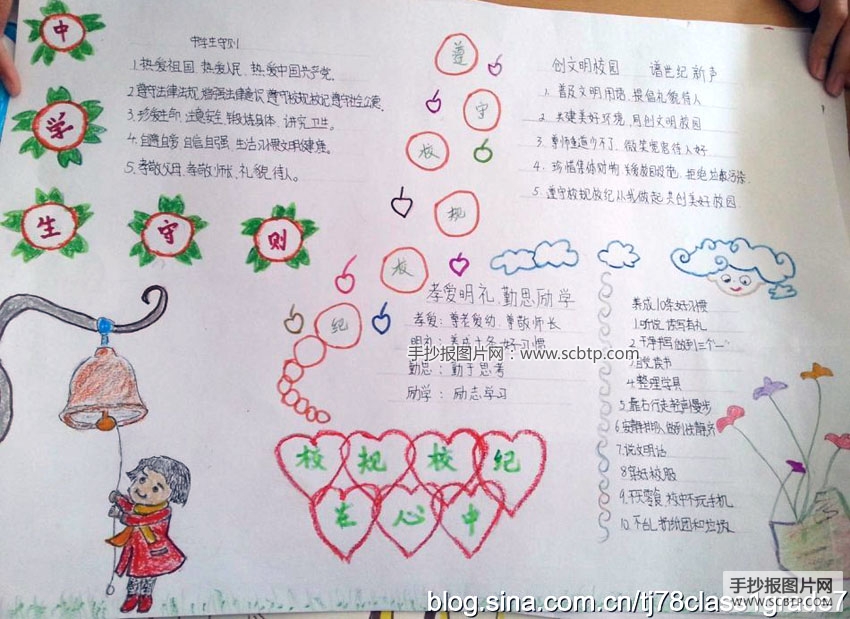 中
学
生
守
则
中学生守则
1.热爱祖国、热爱人民、热爱中国共产党。
2.遵守法律法规,增强法律意识,遵守校规校纪,遵守社会公德。
3.珍爱生命,注意安全,锻炼身体,讲究卫生。
4.自尊自爱,自信自强,生活习惯文明健康。
5.孝敬父母,尊敬师长,礼貌待人。
遵
守
校
规
校
纪
创文明校园 谱世纪新声
1、普及文明用语,提倡礼貌待人
2、共建美好环境,同创文明校园
3、尊师重道少不了,微笑宽容待人好
4、珍惜集体财物,关爱校园设施,拒绝垃圾污染
5、遵守校规校纪从我做起,共创美好校园
孝爱明礼、勤思励学
孝爱:尊老爱幼、尊敬师长
明礼:养成十条好习惯
勤思:勤于思考
励学:励志学习
手抄报图片网:www.scbtp.com
养成10条好习惯
1.听说、读写有礼
2.干净书写做到三个一
3.自觉读书
4.整理学具
5.靠右行走轻声慢步
6.安静排队做到快静齐
7.说文明话
8.穿好校服
9.不吃零食,校中不玩手机
10.不乱扔纸团和垃圾
校 规 校 纪
在 心 中
手抄报图片网
WWW.SCBTP.COM